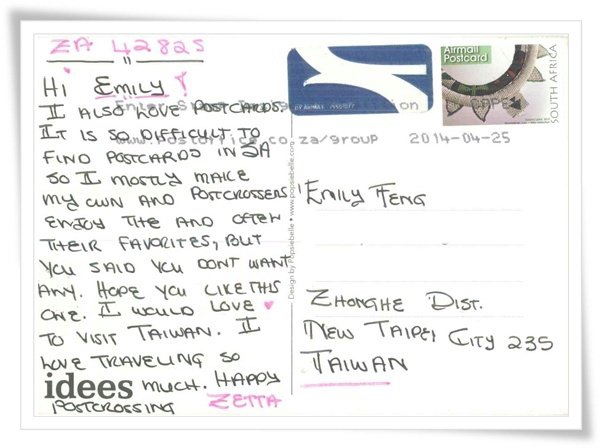 ZA 42825
Hi Emily
I ALSO LOVE POSTCARDS.
IT IS SO DIFFICULT TO
FIND POSTCARDS IN SA
SO I MOSTLY MAKE
MY OWN AND POSTCROSSERS
ENJOY THE AND OFTEN
THEIR FAVORITES, BUT
YOU SAID YOU DONT WANT
ANY. HOPE YOU LIKE THIS
ONE. I WOULD LOVE
TO VISIT TAIWAN. I
LOVE TRAVELING SO
MUCH. HAPPY
POSTCROSSING ZETTA
idees
Design by Popsiebelle • www.popsiebelle.org
BY AIRMAIL
Airmail
Postcard
SOUTH AFRICA
www.postoffice.co.za/group 2014-04-25
EMILY FENG
ZHONGHE DIST.
NEW TAIPEI CITY 235
TAIWAN